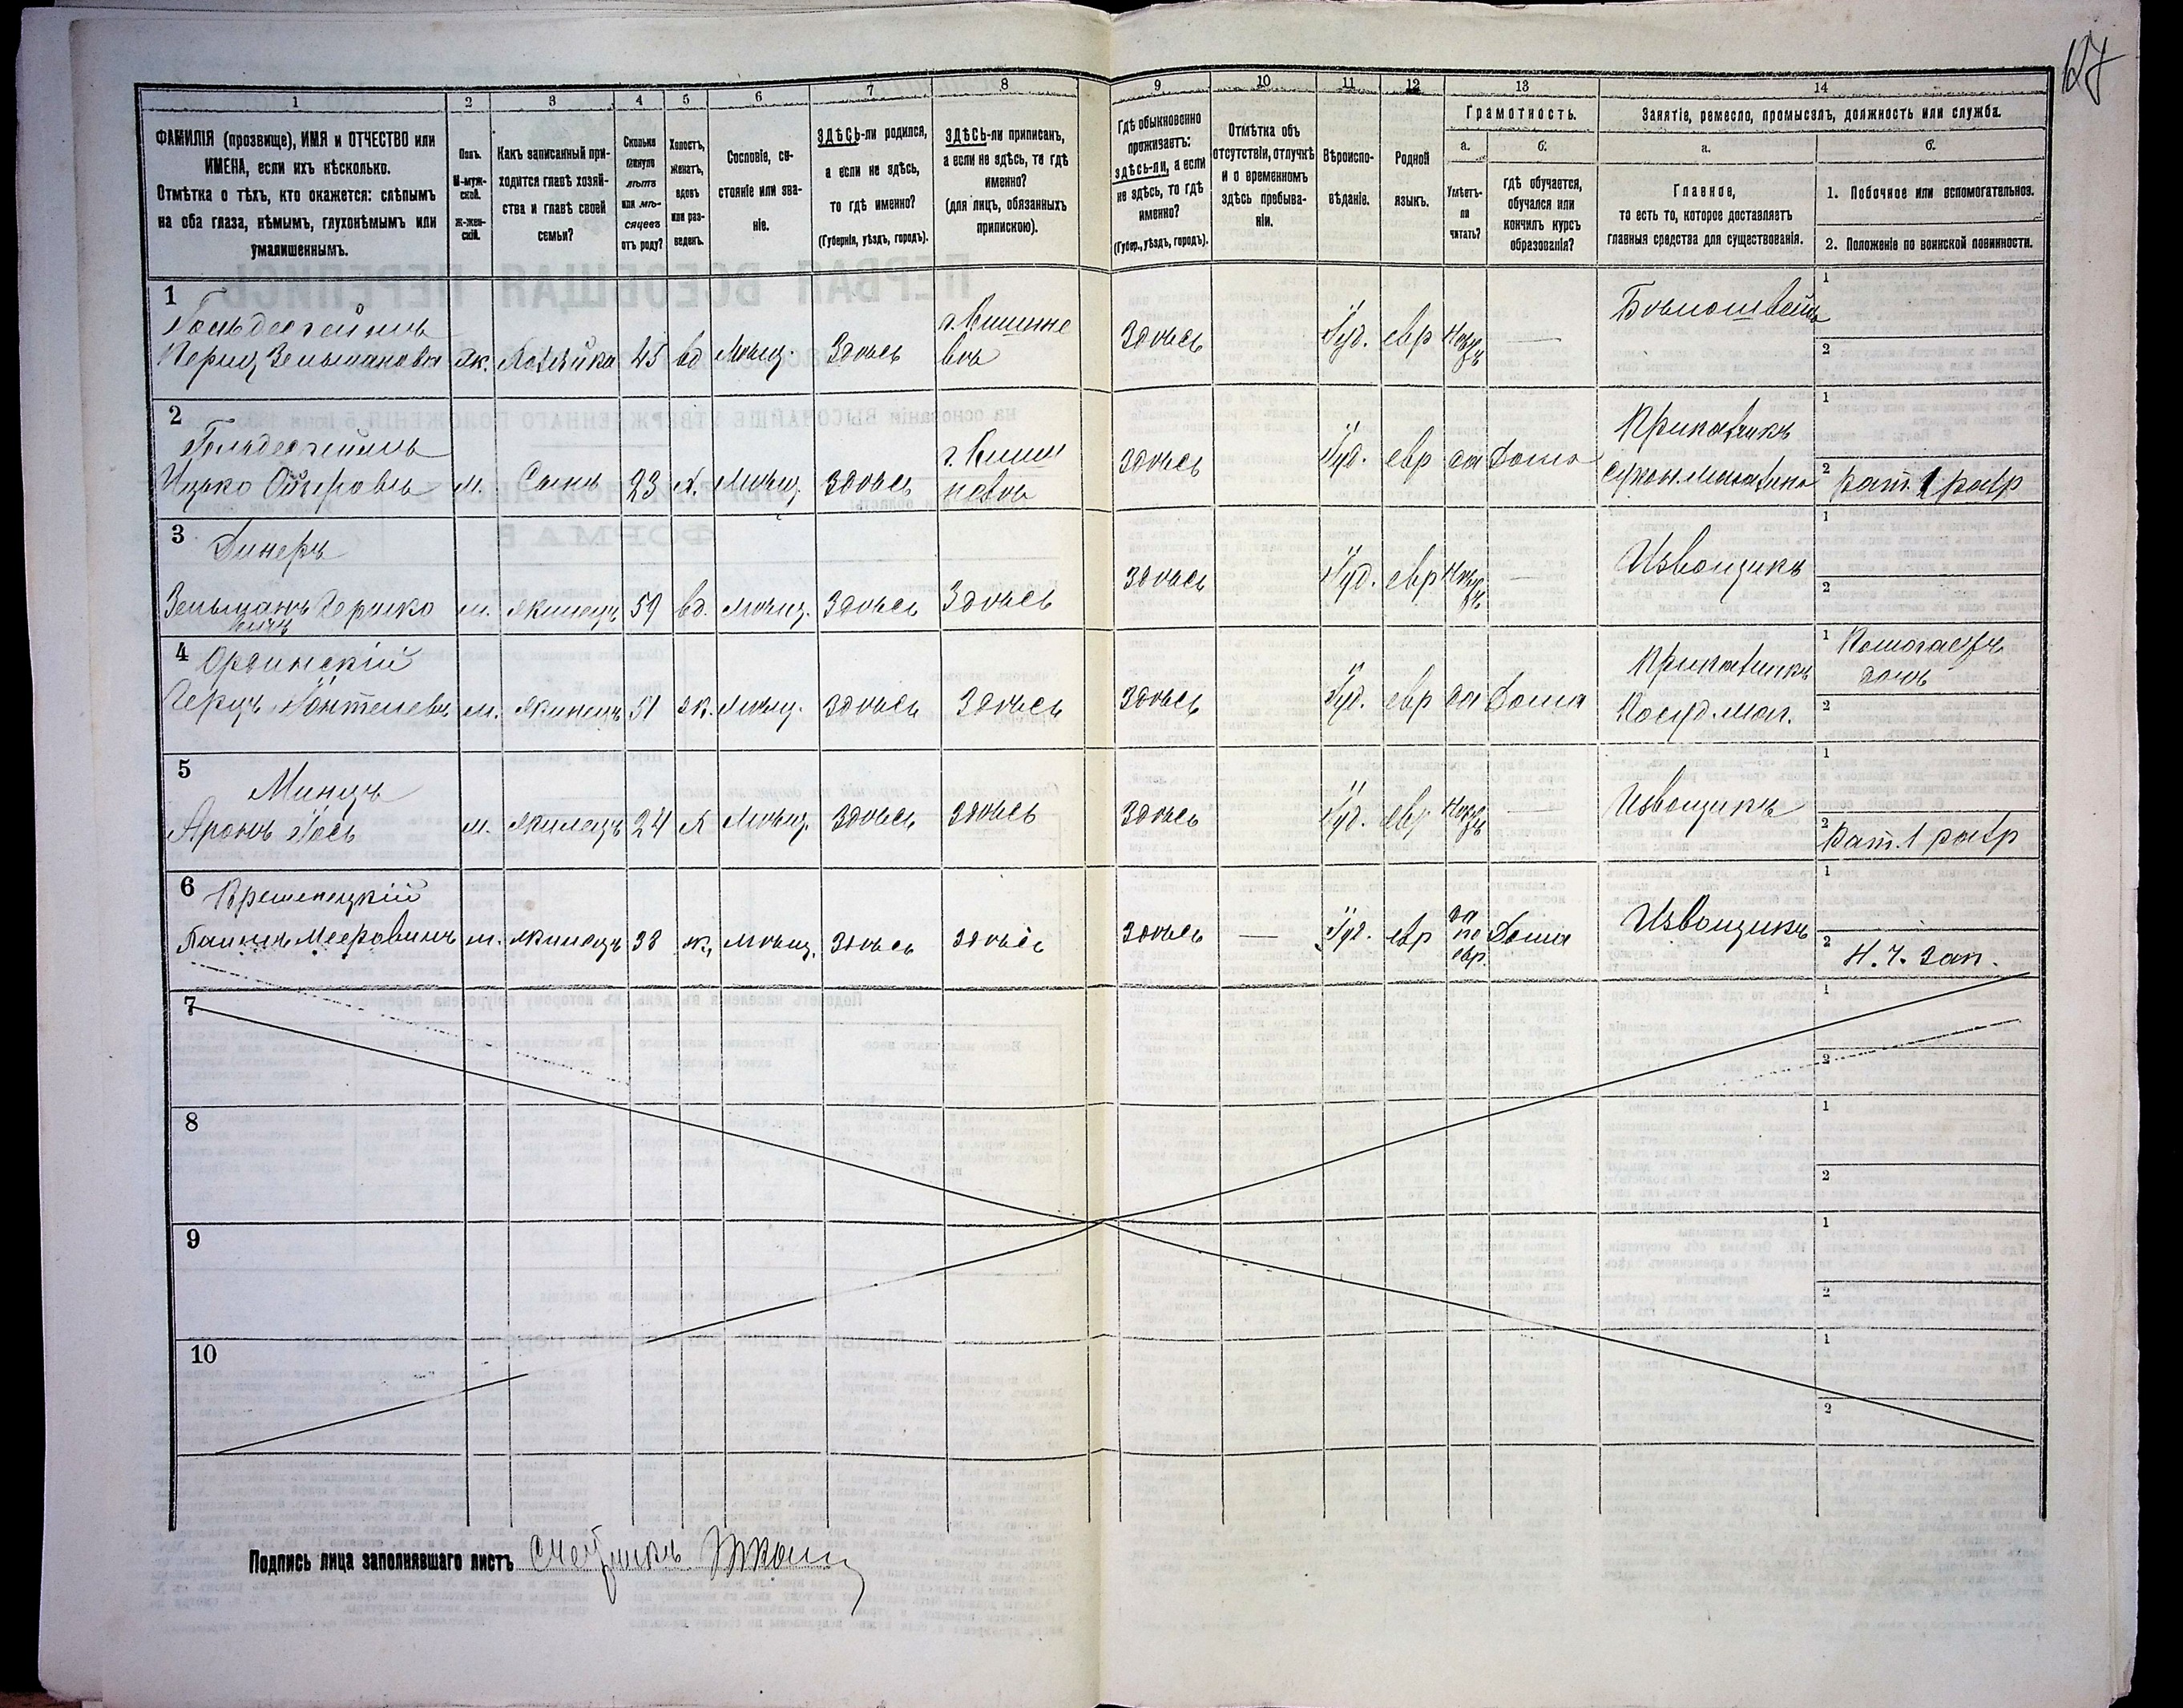 127
1 2 3 4 5 6 7 8 9 10 11 12 13 14
ФАМИЛІЯ (прозвище), ИМЯ и ОТЧЕСТВО или ИМЕНА, если ихъ нѣсколько.
Отмѣтка о тѣхъ, кто окажется: слѣпымъ на оба глаза, нѣмымъ, глухонѣмымъ или умалишеннымъ.
Полъ.
М-мужской.
Ж-женскій.
Какъ записанный приходится главѣ хозяйства и главѣ своей семьи?
Сколько минуло лѣтъ или мѣсяцевъ отъ роду?
Холостъ, женатъ, вдовъ или разведенъ.
Сословіе, состояніе или званіе.
ЗДѢСЬ-ли родился, а если не здѣсь, то гдѣ именно?
(Губернія, уѣздъ, городъ).
ЗДѢСЬ-ли приписанъ, а если не здѣсь, то гдѣ именно?
(для лицъ, обязанныхъ припискою).
Гдѣ обыкновенно проживаетъ: здѣсь-ли, а если не здѣсь, то гдѣ именно?
(Губер., уѣздъ, городъ).
Отмѣтка объ отсутствіи, отлучкѣ и о временномъ здѣсь пребываніи.
Вѣроисповѣданіе.
Родной языкъ.
Грамотность.
а.
Умѣетъ-ли читать?
б.
гдѣ обучается, обучался или кончилъ курсъ образованія?
Занятіе, ремесло, промыселъ, должность или служба.
а.
Главное,
то есть то, которое доставляетъ главныя средства для существованія.
б.
1. Побочное или вспомогательное.
2. Положеніе по воинской повинности.
1 Ж. Хозяйка 45 вд Мѣщ. Здѣсь г. Кишине
вѣ Здѣсь Іуд. евр — Бѣлошвейка 1 2
2 м. Сынъ 23 х. Мѣщ. здѣсь г. Кишиневѣ здѣсь Іуд. евр да Дома Приказчикъ 1 2 рат. 1 разр
3 Динеръ
Зельманъ Гершковичъ м. жилецъ 59 вд. мѣщ. Здѣсь Здѣсь здѣсь Іуд. евр — Извощикъ 1 2
4 м. жилецъ 51 ж. мѣщ. здѣсь здѣсь здѣсь Іуд. евр да Дома Приказчикъ
Посуд. маг. 1 Помогаетъ
дочь 2
5 Минцъ
Аронъ Іось м. жилецъ 24 х Мѣщ. здѣсь здѣсь здѣсь Іуд. евр — Извощикъ 1 2 Рат. 1 разр
6 м. жилецъ 38 ж. мѣщ. здѣсь здѣсь здѣсь — Іуд. евр да по евр. Дома Извощикъ 1 2 Н. Ч. Зап.
7 1 2
8 1 2
9 1 2
10 1 2
Подпись лица заполнявшаго листъ Счетчикъ